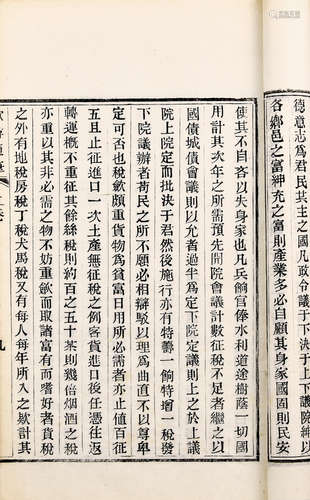 德意志爲君民其主之國凡政令議于下決于上下議院紳以
各鄉邑之富紳充之富則產業多必自顧其身家國固則民安
使其不自吝以失身家也凡兵餉官俸水利道塗樹蔭一切國
用計其次年之所需預先開院會議計數征稅不足者繼之以
國債城債會議則以允者過半爲定下院定議則上之於上議
院上院定而批決于君然後施行亦有特籌一餉特增一稅獎
下院議辦者苟民之所不願必相辯駁以理爲曲直不以尊卑
定可否也稅歛頗重貨物爲貧富日用所必需者亦止值百征
五且止征進口一次土產無征稅之例客貨進口後憑往返
轉運概不重征其餘絲稅則約百之五十茶則幾倍烟酒之稅
亦重以其非必需之物不妨重歛而取諸富有而嗜好者貨稅
之外有地稅房稅丁稅犬馬稅又有每人每年所入之歛計其
九